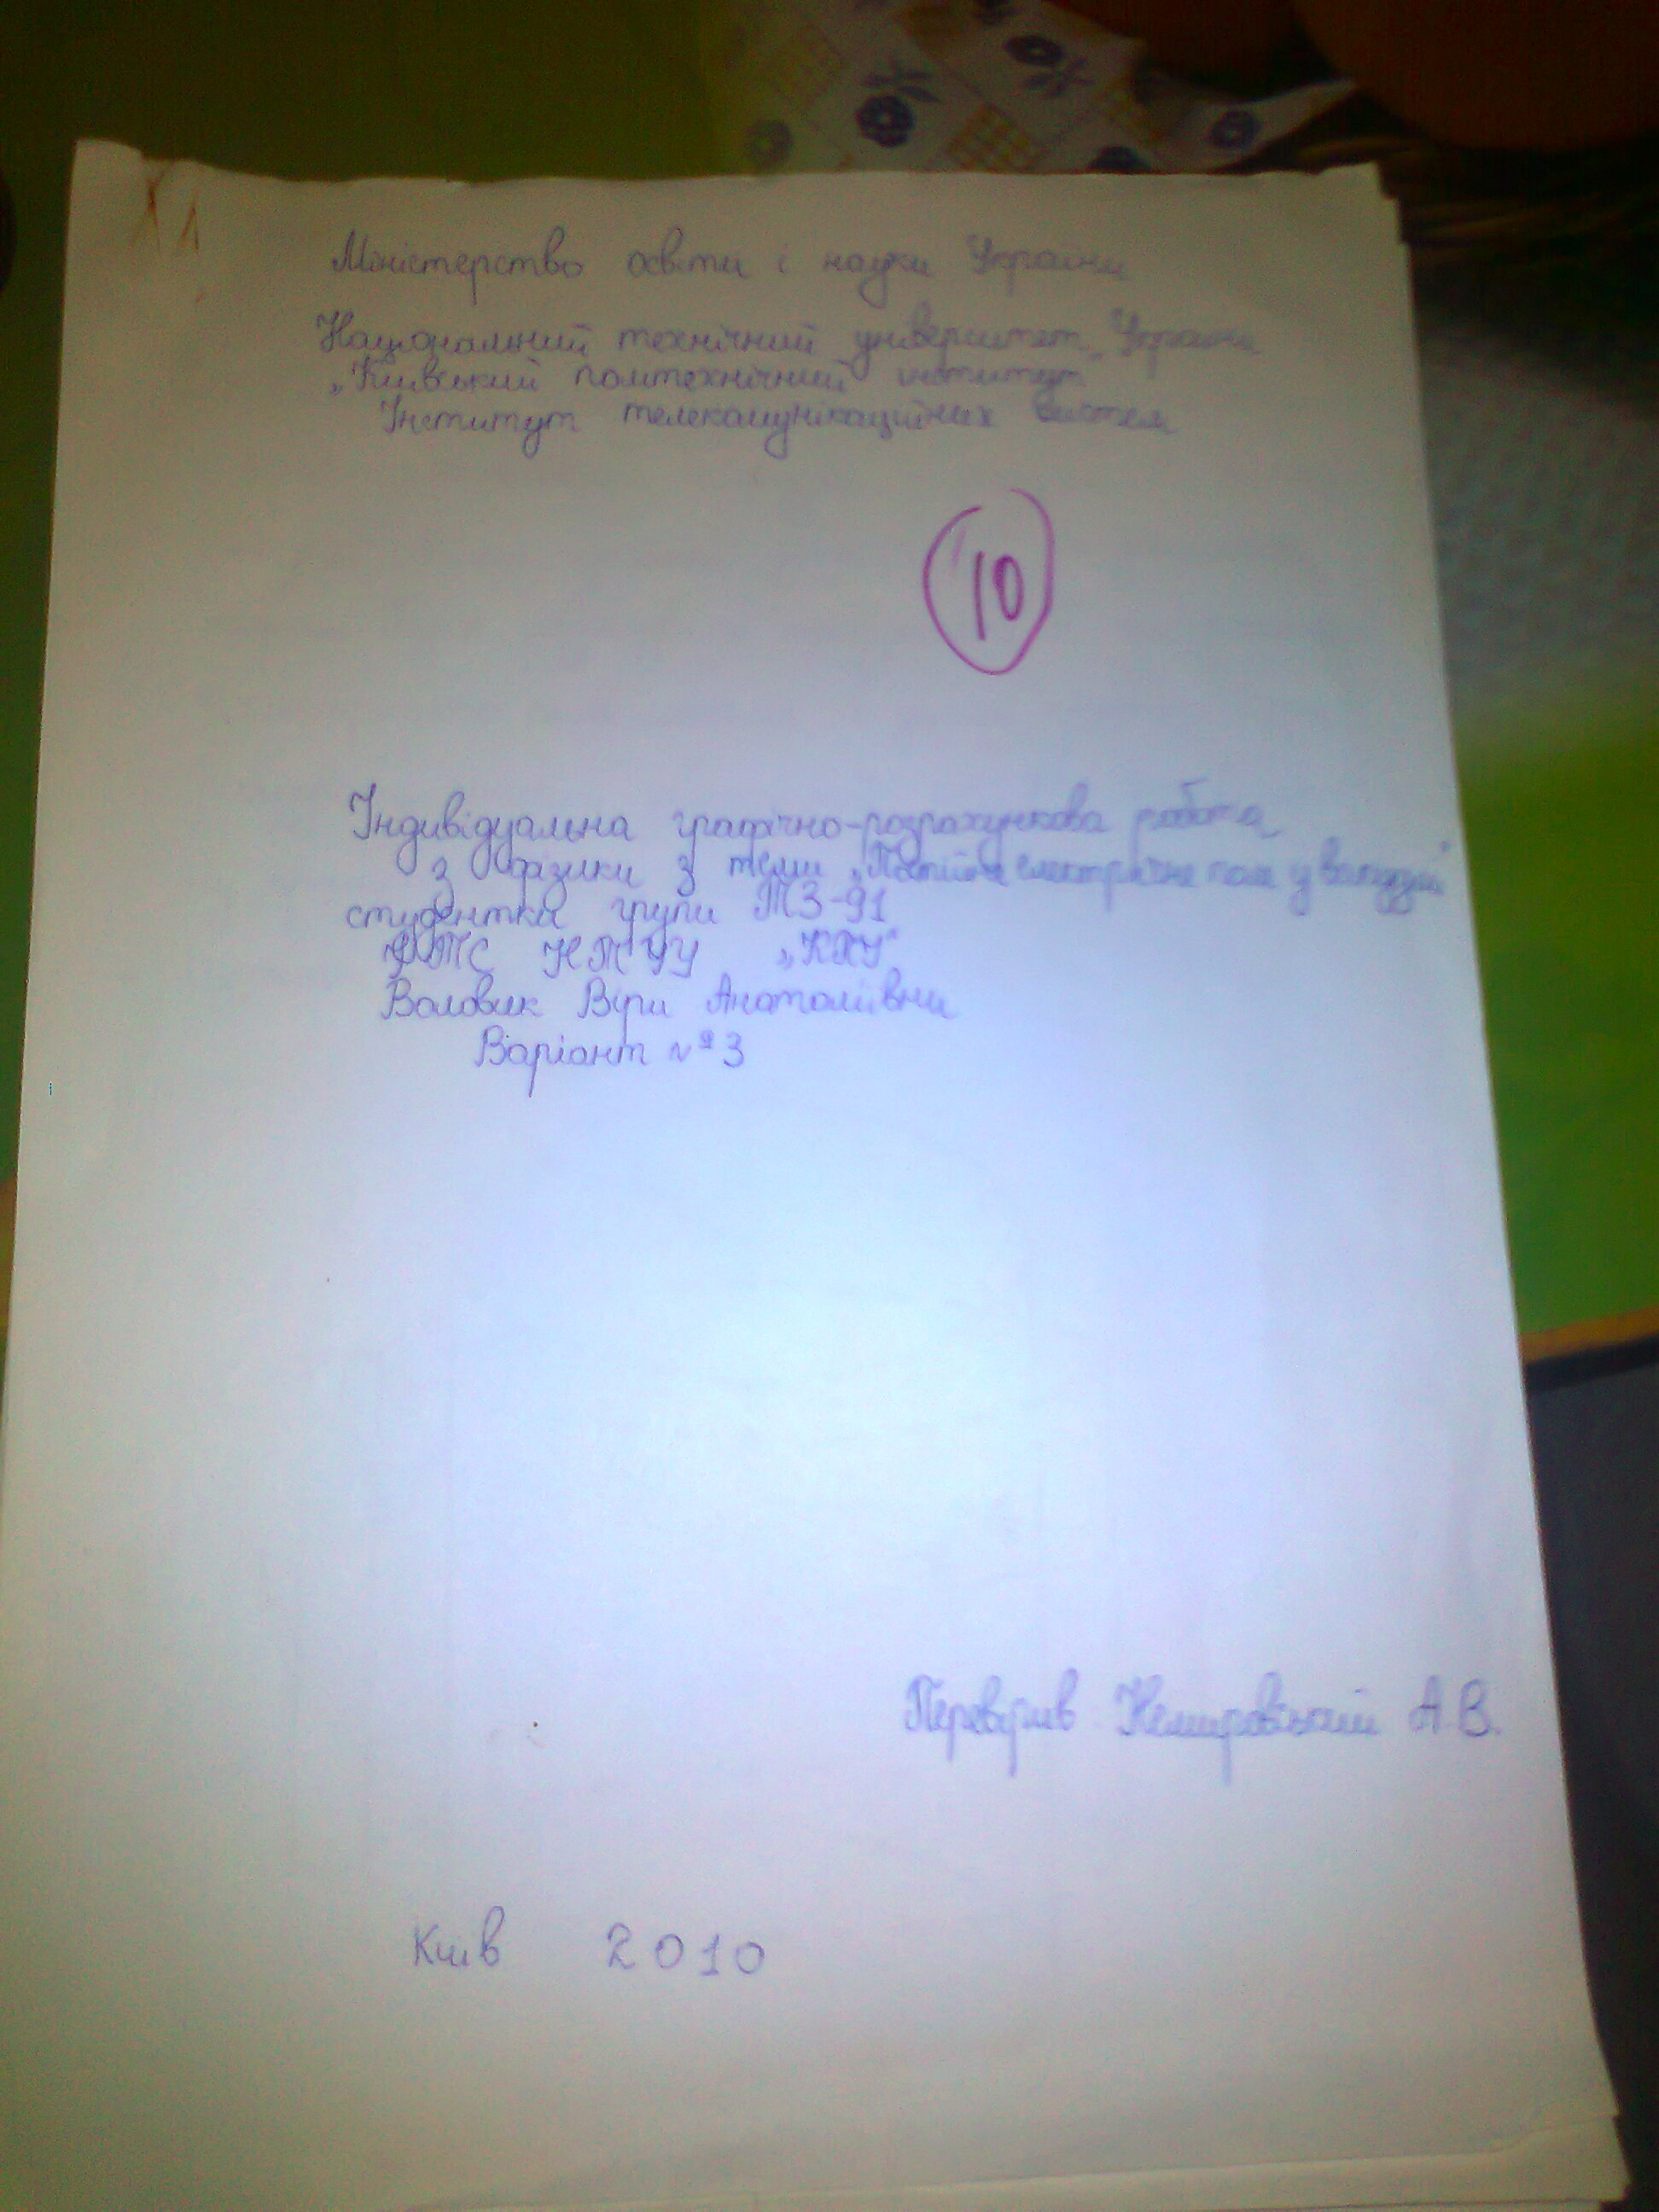 Міністерство освіти і науки України
Національний технічний університет України
„Київський політехнічний інститут"
Інститут телекомунікаційних систем
10
Індивідуальна графічно-розрахункова робота
з фізики з теми „Постійне електричне поле у вакуумі"
студентки групи ТЗ-91
ІТС НТУУ „КПІ"
Воловик Віри Анатоліївни
Варіант №3
Перевірив Немировський А.В.
Київ 2010